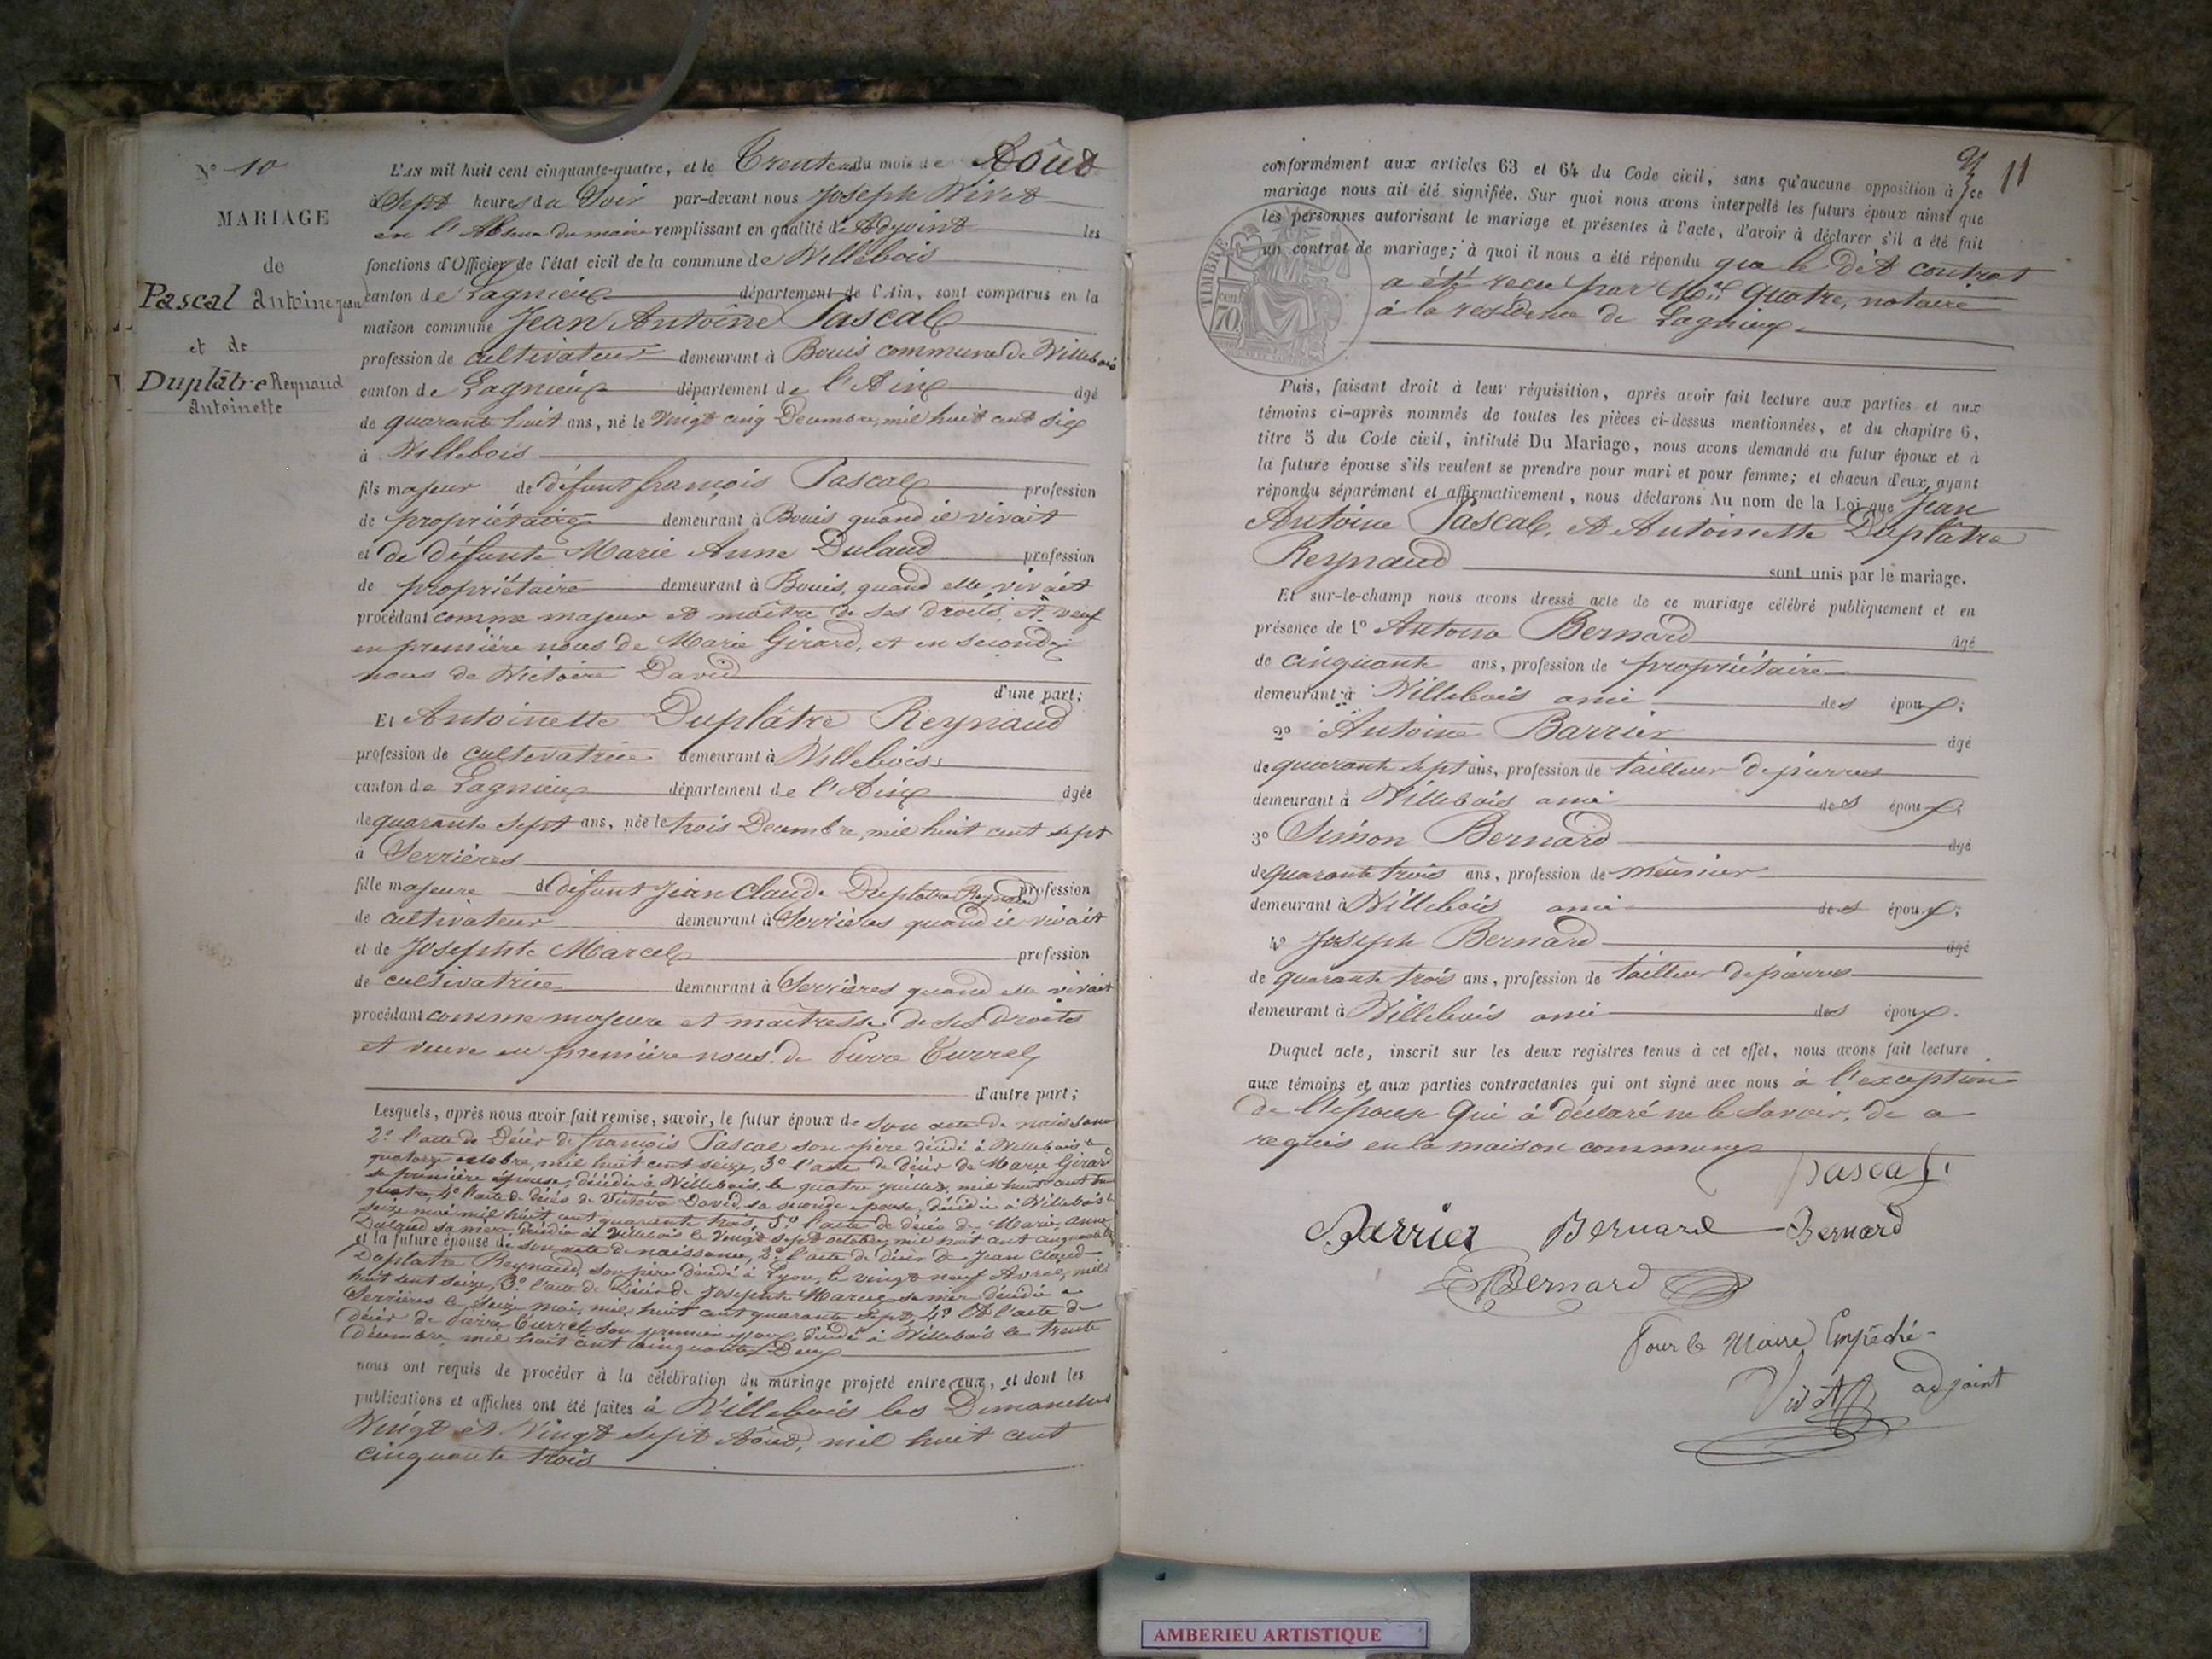 N° 10
MARIAGE
de
Pascal Antoine Jean
et de
Duplâtre Reynaud
Antoinette
L'AN mil huit cent cinquante-quatre, et le Trente du mois de Aoûd
à Sept heures du Soir par-devant nous Joseph Vivet
en l'Absence du maire remplissant en qualité de Adjoint les
fonctions d'Officier de l'état civil de la commune de Villebois
canton de Lagnieux département de l'Ain, sont comparus en la
maison commune Jean Antoine Pascal
profession de cultivateur demeurant à Bouis commune de Villebois
canton de Lagnieux département de l'Ain âgé
de quarante huit ans, né le vingt cinq Decembre, mil huit cent six
à Villebois
fils majeur de défunt françois Pascal profession
de propriétaire demeurant à Bouis quand il vivait
et de défunte Marie Anne Dulaud profession
de propriétaire demeurant à Bouis, quand elle vivait
procédant comme majeur et maître de ses droits, et veuf
en première nous de Marie Girard, et en seconde
nous de Victoire David
d'une part;
Et Antoinette Duplâtre Reynaud
profession de cultivatrice demeurant à Villebois
canton de Lagnieux département de l'Ain âgée
de quarante sept ans, née le trois Decembre, mil huit cent sept
à Serrières
fille majeure de défunt Jean Claude Duplatre Reynaud profession
de cultivateur demeurant à Serrières quand il vivait
et de Josephte Marcel profession
de cultivatrice demeurant à Serrières quand elle vivait
procédant comme majeure et maîtresse de ses droits
et veuve en première nous de Pierre Currel
d'autre part;
Lesquels, après nous avoir fait remise, savoir, le futur époux de son acte de naissance
2° l'acte de Décès de françois Pascal son père décédé à Villebois le
quatorze octobre, mil huit cent seize, 3° l'acte de décès de Marie Girard
sa première épouse, décédée à Villebois, le quatre juillet, mil huit cent
quatre, 4° l'acte de décès de Victoire David, sa seconde epouse, décédée à Villebois le
seize mai mil huit cent quarante trois, 5° l'acte de décès de Marie Anne
Dulaud sa mère décédée à Villebois le vingt sept octobre, mil huit cent
et la future épouse de son acte de naissance, 2° l'acte de décès de Jean Claude
Duplatre Reynaud, son père décédé à Lyon, le vingt neuf Avril, mil
huit cent seize, 3° l'acte de Décès de Josephte Marcel sa mère décédée à
Serrières le seize mai, mil huit cent quarante sept, 4° et l'acte de
décès de Pierre Currel, son premier epoux, décédé à Villebois le trente
décembre mil huit cent cinquante Deux
nous ont requis de procéder à la célébration du mariage projeté entre eux, et dont les
publications et affiches ont été faites à Villebois les Dimanches
Vingt et Vingt sept Aoûd, mil huit cent
cinquante trois
11
conformément aux articles 63 et 64 du Code civil, sans qu'aucune opposition à ce
mariage nous ait été signifiée. Sur quoi nous avons interpellé les futurs époux ainsi que
les personnes autorisant le mariage et présentes à l'acte, d'avoir à déclarer s'il a été fait
un contrat de mariage; à quoi il nous a été répondu que le dit contrat
a été reçu par Quatre, notaire
à la résidence de Lagnieux
TIMBRE
70
Puis, faisant droit à leur réquisition, après avoir fait lecture aux parties et aux
témoins ci-après nommés de toutes les pièces ci-dessus mentionnées, et du chapitre 6,
titre 5 du Code civil, intitulé Du Mariage, nous avons demandé au futur époux et à
la future épouse s'ils veulent se prendre pour mari et pour femme; et chacun d'eux ayant
répondu séparément et affirmativement, nous déclarons Au nom de la Loi que Jean
Antoine Pascal, et Antoinette Duplâtre
Reynaud sont unis par le mariage.
Et sur-le-champ nous avons dressé acte de ce mariage célébré publiquement et en
présence de 1° Antoine Bernard âgé
de cinquante ans, profession de propriétaire
demeurant à Villebois ami des époux;
2° Antoine Barrier âgé
de quarante sept ans, profession de tailleur de pierres
demeurant à Villebois ami des époux;
3° Simon Bernard âgé
de quarante trois ans, profession de meunier
demeurant à Villebois ami des époux;
4° Joseph Bernard âgé
de quarante trois ans, profession de tailleur de pierres
demeurant à Villebois ami des époux.
Duquel acte, inscrit sur les deux registres tenus à cet effet, nous avons fait lecture
aux témoins et aux parties contractantes qui ont signé avec nous à l'exception
de l'épouse qui à déclaré ne le savoir, de ce
requis en la maison commune
Pascal
Barrier Bernard Bernard
Bernard
Pour le Maire Empêché
Vivet adjoint
AMBERIEU ARTISTIQUE